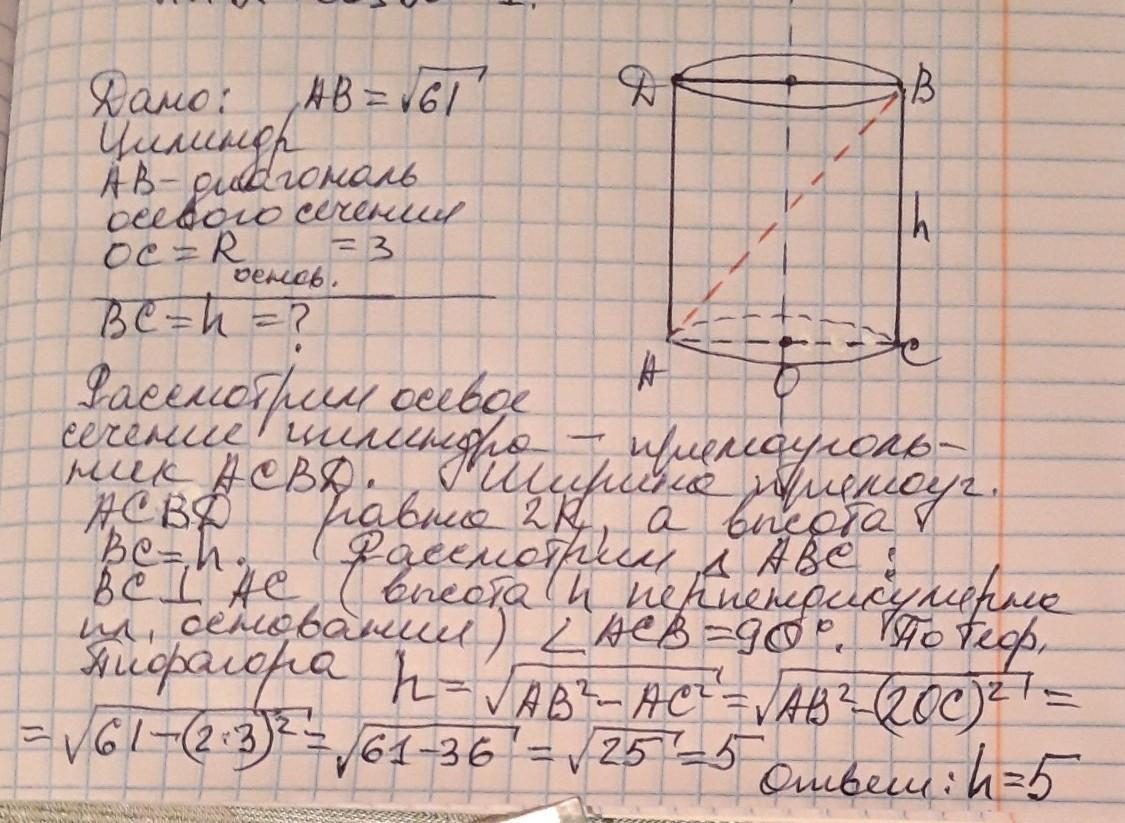 Дано: AB = √61
Цилиндр
AB - диагональ
осевого сечения
OC = R основ. = 3
BC = h = ?
D B
h
A O C
Рассмотрим осевое
сечение цилиндра — прямоуголь-
ник ACBD. Ширина прямоуг.
ACBD равна 2R, а высота
BC = h. Рассмотрим △ ABC:
BC ⊥ AC (высота h перпендикулярна
пл. основании) ∠ ACB = 90°. По теор.
Пифагора h = √AB² - AC² = √AB² - (2OC)² =
= √61 - (2·3)² = √61 - 36 = √25 = 5
Ответ: h = 5